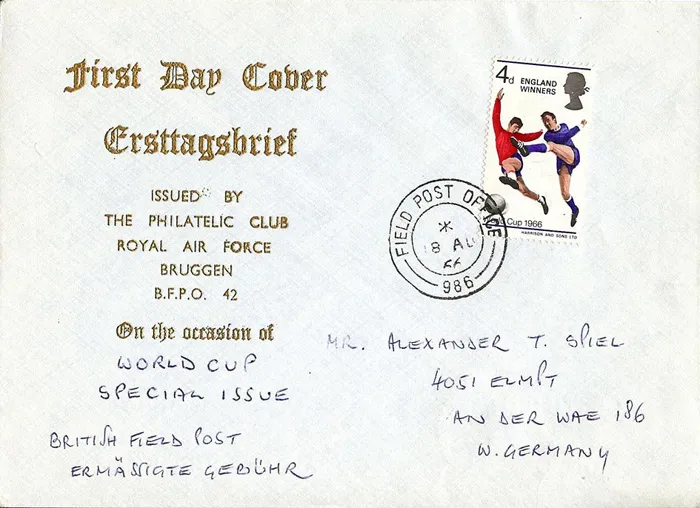 First Day Cover
Ersttagsbrief
ISSUED BY
THE PHILATELIC CLUB
ROYAL AIR FORCE
BRUGGEN
B.F.P.O. 42
On the occasion of
WORLD CUP
SPECIAL ISSUE
BRITISH FIELD POST
ERMÄSSIGTE GEBÜHR
4d ENGLAND
WINNERS
Cup 1966
HARRISON AND SONS LTD
FIELD POST OFFICE
18 AU
66
986
MR. ALEXANDER T. SPIEL
4051 ELMPT
AN DER WAE 186
W. GERMANY